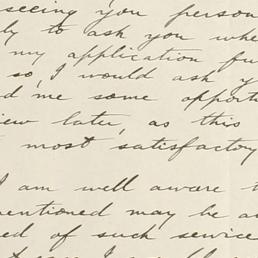 seeing you person
ly to ask you whe
my application fu
so, I would ask y
d me some opportu
iew later, as this
most satisfactory
I am well aware t
mentioned may be a
ed of such service